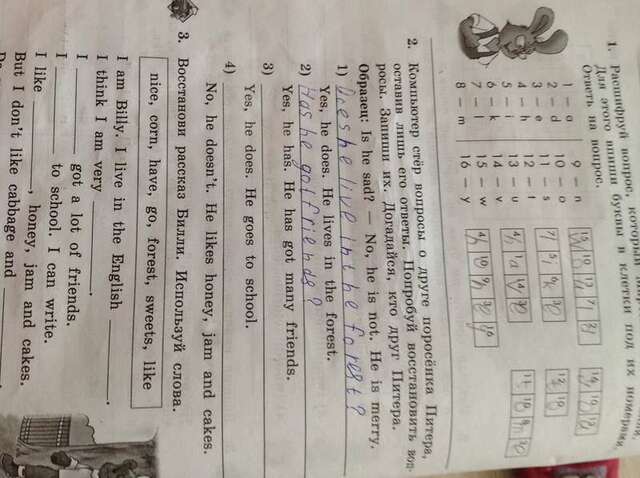 1. Расшифруй вопрос, который
Для этого впиши буквы в клетки под их номерами.
Ответь на вопрос.
1 – a 9 – n
2 – d 10 – o
3 – e 11 – s
4 – h 12 – t
5 – i 13 – u
6 – k 14 – v
7 – l 15 – w
8 – m 16 – y
2. Компьютер стёр вопросы о друге поросёнка Питера,
оставив лишь его ответы. Попробуй восстановить воп-
росы. Запиши их. Догадайся, кто друг Питера.
Образец: Is he sad? — No, he is not. He is merry.
1) Does he live in the forest?
Yes, he does. He lives in the forest.
2) Has he got friends?
Yes, he has. He has got many friends.
3)
Yes, he does. He goes to school.
4)
No, he doesn't. He likes honey, jam and cakes.
3. Восстанови рассказ Билли. Используй слова.
nice, corn, have, go, forest, sweets, like
I am Billy. I live in the English
I think I am very
I got a lot of friends.
I to school. I can write.
I like , honey, jam and cakes.
But I don't like cabbage and